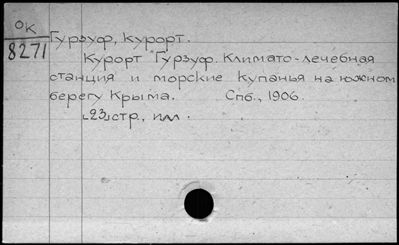 ОК
8271
Гурзуф, курорт.
Курорт Гурзуф. Климато-лечебная
станция и морские купанья на южном
берегу Крыма. Спб., 1906.
23 стр., илл.